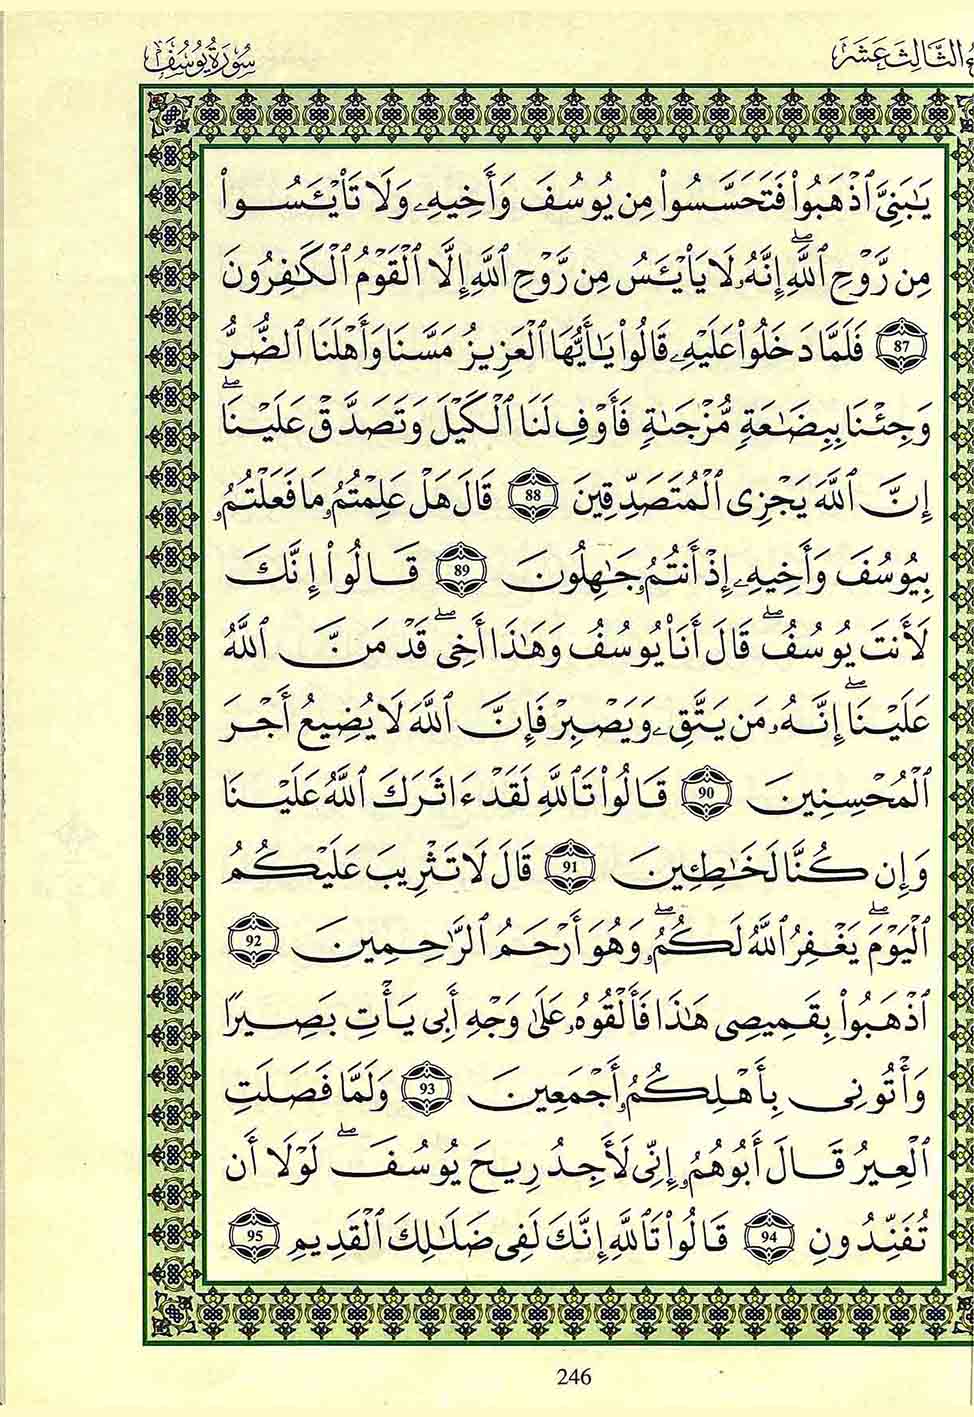 الثَّالِثَ عَشَرَ
سُورَةُ يُوسُفَ
يَٰبَنِىَّ ٱذْهَبُواْ فَتَحَسَّسُواْ مِن يُوسُفَ وَأَخِيهِۦ وَلَا تَاْيْـَٔسُواْ
مِن رَّوْحِ ٱللَّهِۖ إِنَّهُۥ لَا يَاْيْـَٔسُ مِن رَّوْحِ ٱللَّهِ إِلَّا ٱلْقَوْمُ ٱلْكَٰفِرُونَ
87 فَلَمَّا دَخَلُواْ عَلَيْهِۦ قَالُواْ يَٰأَيُّهَا ٱلْعَزِيزُ مَسَّنَا وَأَهْلَنَا ٱلضُّرُّ
وَجِئْنَا بِبِضَٰعَةٍ مُّزْجَىٰةٍ فَأَوْفِ لَنَا ٱلْكَيْلَ وَتَصَدَّقْ عَلَيْنَاۖ
إِنَّ ٱللَّهَ يَجْزِى ٱلْمُتَصَدِّقِينَ 88 قَالَ هَلْ عَلِمْتُمُۥ مَا فَعَلْتُمُۥ
بِيُوسُفَ وَأَخِيهِۦ إِذْ أَنتُمُۥ جَٰهِلُونَ 89 قَالُواْ إِنَّكَ
لَأَنتَ يُوسُفُۖ قَالَ أَنَا۠ يُوسُفُ وَهَٰذَا أَخِىۖ قَدْ مَنَّ ٱللَّهُ
عَلَيْنَاۖ إِنَّهُۥ مَن يَتَّقِۦ وَيَصْبِرْ فَإِنَّ ٱللَّهَ لَا يُضِيعُ أَجْرَ
ٱلْمُحْسِنِينَ 90 قَالُواْ تَٱللَّهِ لَقَدْ ءَاثَرَكَ ٱللَّهُ عَلَيْنَا
وَإِن كُنَّا لَخَٰطِـِٔينَ 91 قَالَ لَا تَثْرِيبَ عَلَيْكُمُ
ٱلْيَوْمَۖ يَغْفِرُ ٱللَّهُ لَكُمُۥۖ وَهُوَ أَرْحَمُ ٱلرَّٰحِمِينَ 92
ٱذْهَبُواْ بِقَمِيصِى هَٰذَا فَأَلْقُوهُۥ عَلَىٰ وَجْهِ أَبِى يَأْتِ بَصِيرًا
وَأْتُونِى بِأَهْلِكُمُۥ أَجْمَعِينَ 93 وَلَمَّا فَصَلَتِ
ٱلْعِيرُ قَالَ أَبُوهُمُۥ إِنِّى لَأَجِدُ رِيحَ يُوسُفَۖ لَوْلَا أَن
تُفَنِّدُونِ 94 قَالُواْ تَٱللَّهِ إِنَّكَ لَفِى ضَلَٰلِكَ ٱلْقَدِيمِ 95
246